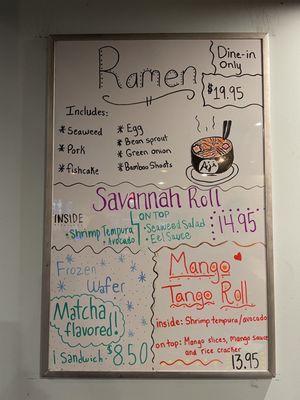 Ramen
Dine-in
Only
$19.95
Includes:
* Seaweed
* Pork
* fishcake
* Egg
* Bean sprout
* Green onion
* Bamboo Shoots
Aji's
Savannah Roll
INSIDE
• Shrimp Tempura
• Avocado
ON TOP
• Seaweed Salad
• Eel Sauce
14.95
Frozen
Wafer
Matcha
flavored!!
1 Sandwich - $8.50
Mango
Tango Roll
inside: Shrimp tempura/avocado
on top: Mango slices, mango sauce
and rice cracker
13.95